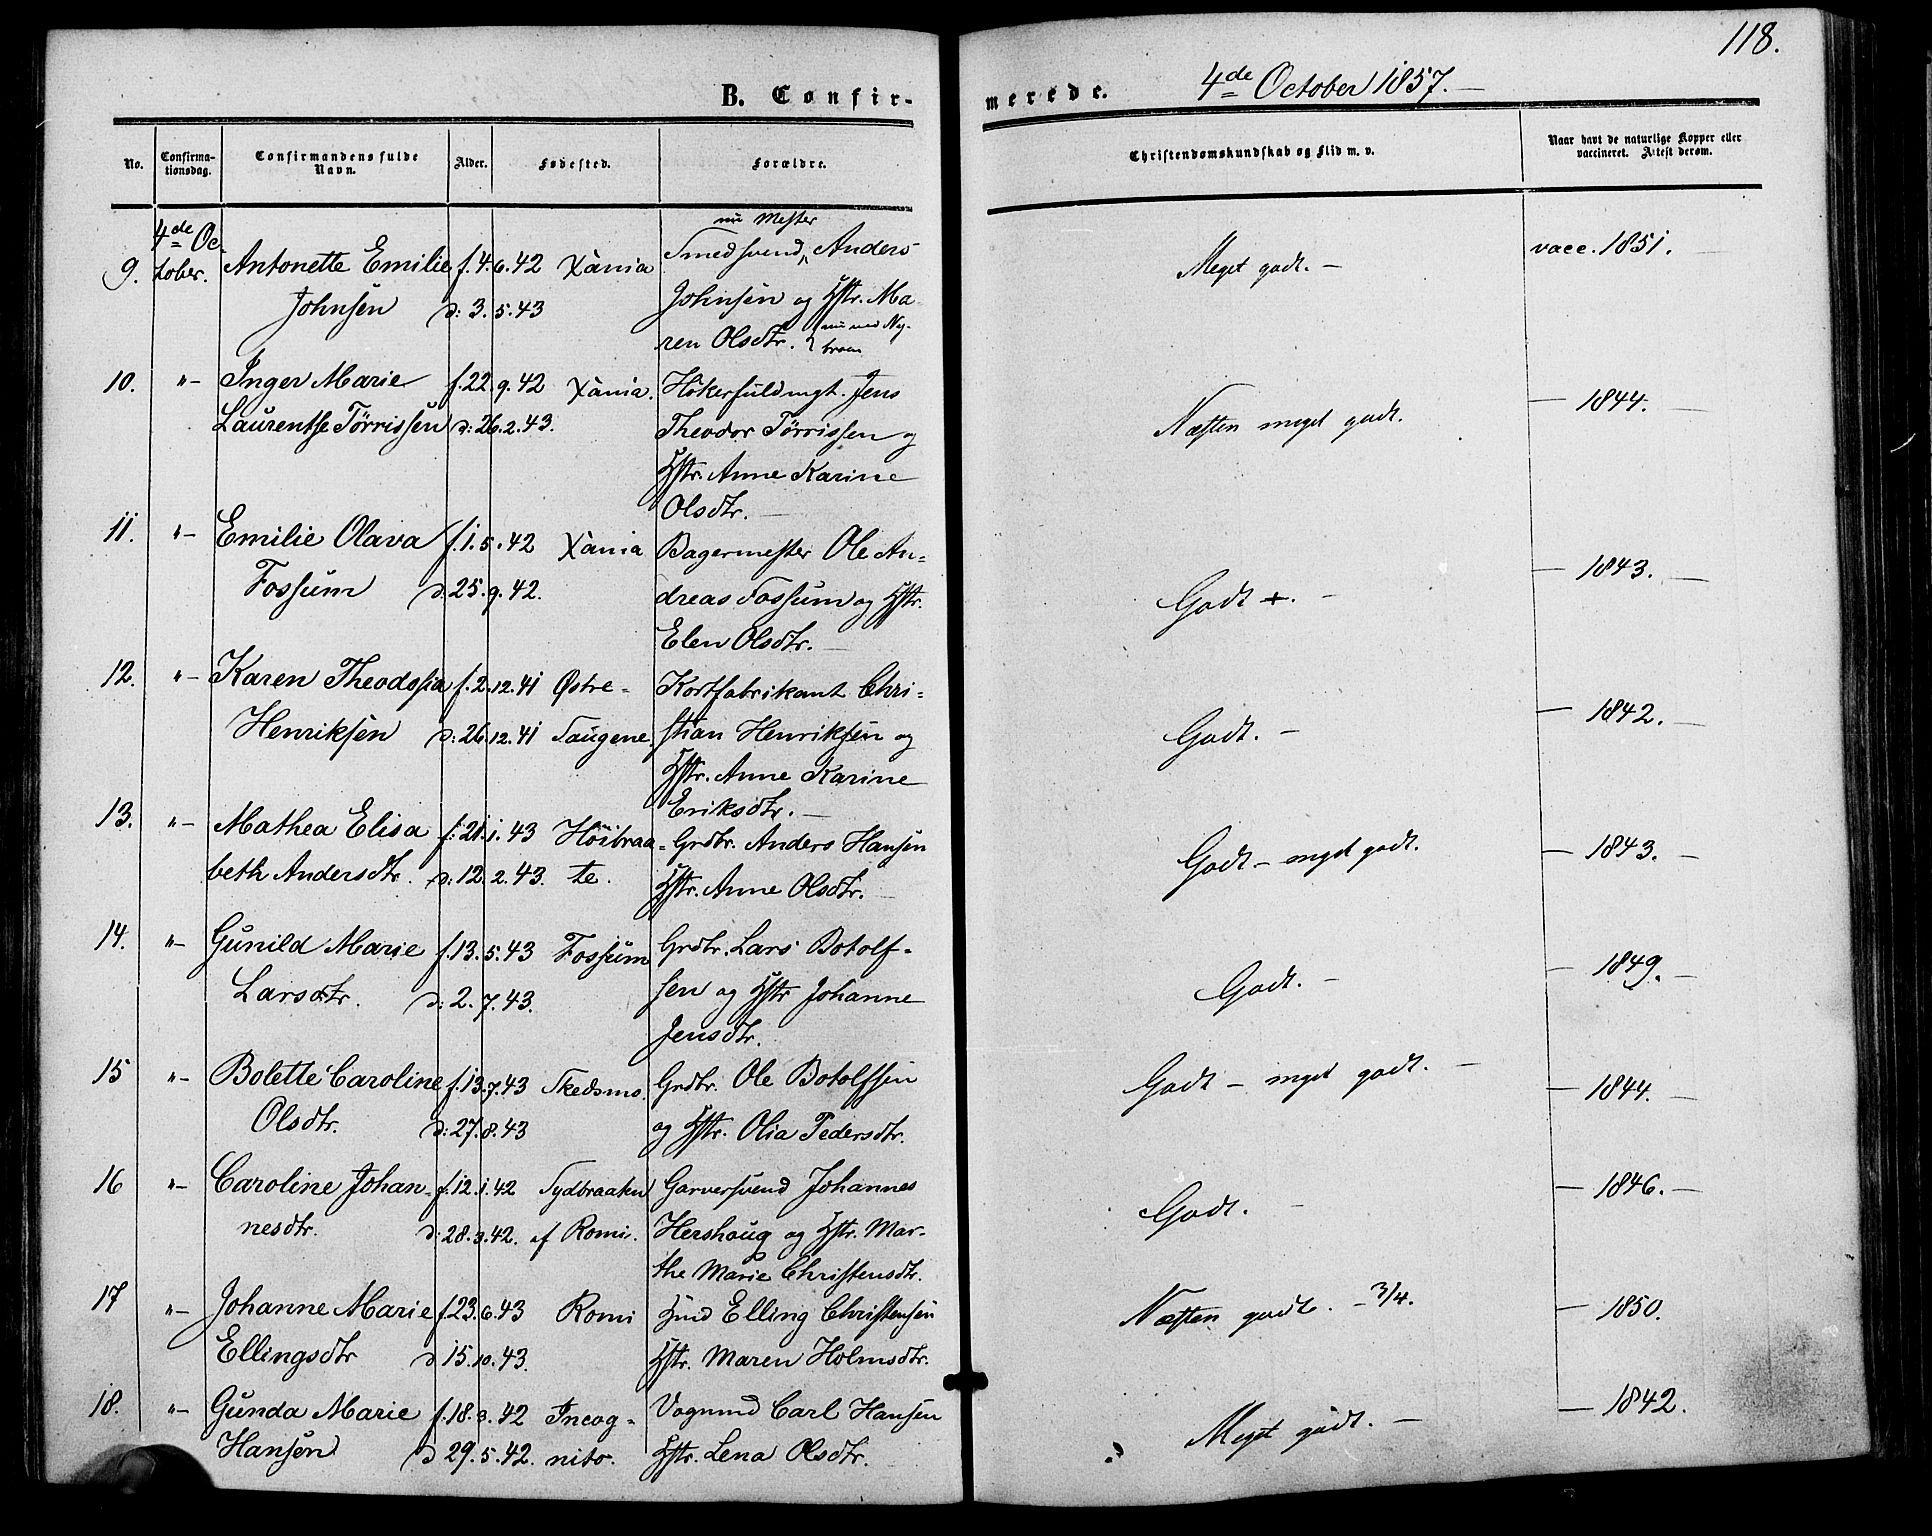 118.
B. Confir-
merede. 4de October 1857.
No. Confirma-
tionsdag. Confirmandens fulde
Navn. Alder. Fødested. Forældre. Christendomskundskab og Flid m. v. Naar havt de naturlige Kopper eller
vaccineret. Attest derom.
nu Mester
4de Oc
9. tober. Antonette Emilie f. 4. 6. 42 Xania Smedsvend, Anders Meget godt. – vacc. 1851. –
Johnsen d: 3. 5. 43 Johnsen og Hstr. Ma
ren Olsdtr.
10. "– Inger Marie f. 22. 9. 42 Xania. Høkerfuldmgt. Jens Næsten meget godt. — 1844. —
Laurentse Tørrissen d: 26. 2. 43. Theodor Tørrissen og
Hstr. Anne Karine
Olsdtr. —
11. "– Emilie Olava f. 1. 5. 42 Xania Bagermester Ole An- Godt +. – — 1843. —
Fossum d. 25. 9. 42. dreas Fossum og Hstr.
Elen Olsdtr. —
12. "– Karen Theodosia f. 2. 12. 41 Østre- Kortfabrikant Chri- Godt. – — 1842. —
Henriksen d: 26. 12. 41 Taugene. stian Henriksen og
Hstr. Anne Karine
Eriksdtr. —
13. "– Mathea Elisa f: 21. 1. 43 Høibraa- Grdbr. Anders Hansen Godt – meget godt. — 1843. —
beth Andersdtr. d: 12. 2. 43. te. Hstr. Anne Olsdtr. —
14. "– Gunild Marie f. 13. 5. 43 Fossum Grdbr. Lars Botolf- Godt. – — 1849. —
Larsdtr. d: 2. 7. 43. sen og Hstr Johanne
Jensdtr.
15 "– Bolette Caroline f. 13. 7. 43 Skedsmo. Grdbr. Ole Botolfsen Godt – meget godt. — — 1844. —
Olsdtr. d: 27. 8. 43 og Hstr. Olia Pedersdtr.
16 "– Caroline Johan- f. 12. 1. 42 Sydbraaten Garversvend Johannes Godt. – — 1846. —
nesdtr. d: 28. 3. 42. af Romi. Hershoug og Hstr. Mar-
the Marie Christensdtr.
17 "– Johanne Marie f. 23. 6. 43 Romi Hmd Elling Christensen Næsten godt. – 3/4. — 1850. —
Ellingsdtr d 15. 10. 43. Hstr. Maren Holmsdtr.
18. "– Gunda Marie f. 18. 3. 42 Incog- Vognmd Carl Hansen Meget godt. – — 1842.
Hansen d 29. 5. 42. nito. Hstr. Lena Olsdtr.